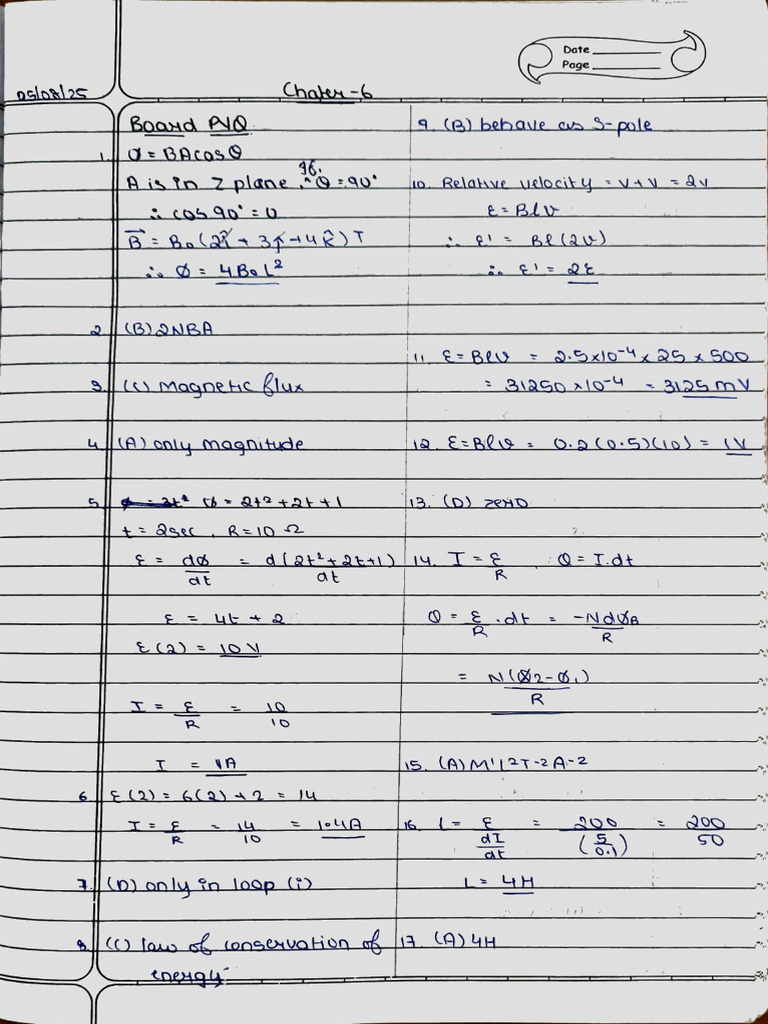 Date
Page
05/08/25
Chater-6
Board PYQ
1. Ø = BAcosθ
A is in Z plane. ∴ θ = 90°
∴ cos 90° = 0
B⃗ = B₀(2î + 3ĵ + 4k̂) T
∴ Ø = 4B₀L²
2. (B) 2NBA
3. (C) magnetic flux
4. (A) only magnitude
5. Ø = 2t² + 2t + 1
t = 2sec, R = 10 Ω
ε = dØ/dt = d(2t² + 2t + 1)/dt
ε = 4t + 2
ε(2) = 10 V
I = ε/R = 10/10
I = 1A
6. ε(2) = 6(2) + 2 = 14
I = ε/R = 14/10 = 1.4A
7. (D) only in loop (i)
8. (C) law of conservation of
energy
9. (B) behave as S-pole
10. Relative velocity = v + v = 2v
ε = Blv
∴ ε' = Bl(2v)
∴ ε' = 2ε
11. ε = Blv = 2.5×10⁻⁴ × 25 × 500
= 31250 × 10⁻⁴ = 3125 mV
12. ε = Blv = 0.2(0.5)(10) = 1V
13. (D) zero
14. I = ε/R , Q = I.dt
Q = ε/R . dt = -NdØB/R
= N(Ø2 - Ø1)/R
15. (A) M¹L²T-2A-2
16. L = ε/(dI/dt) = 200/(5/0.1) = 200/50
L = 4H
17. (A) 4H